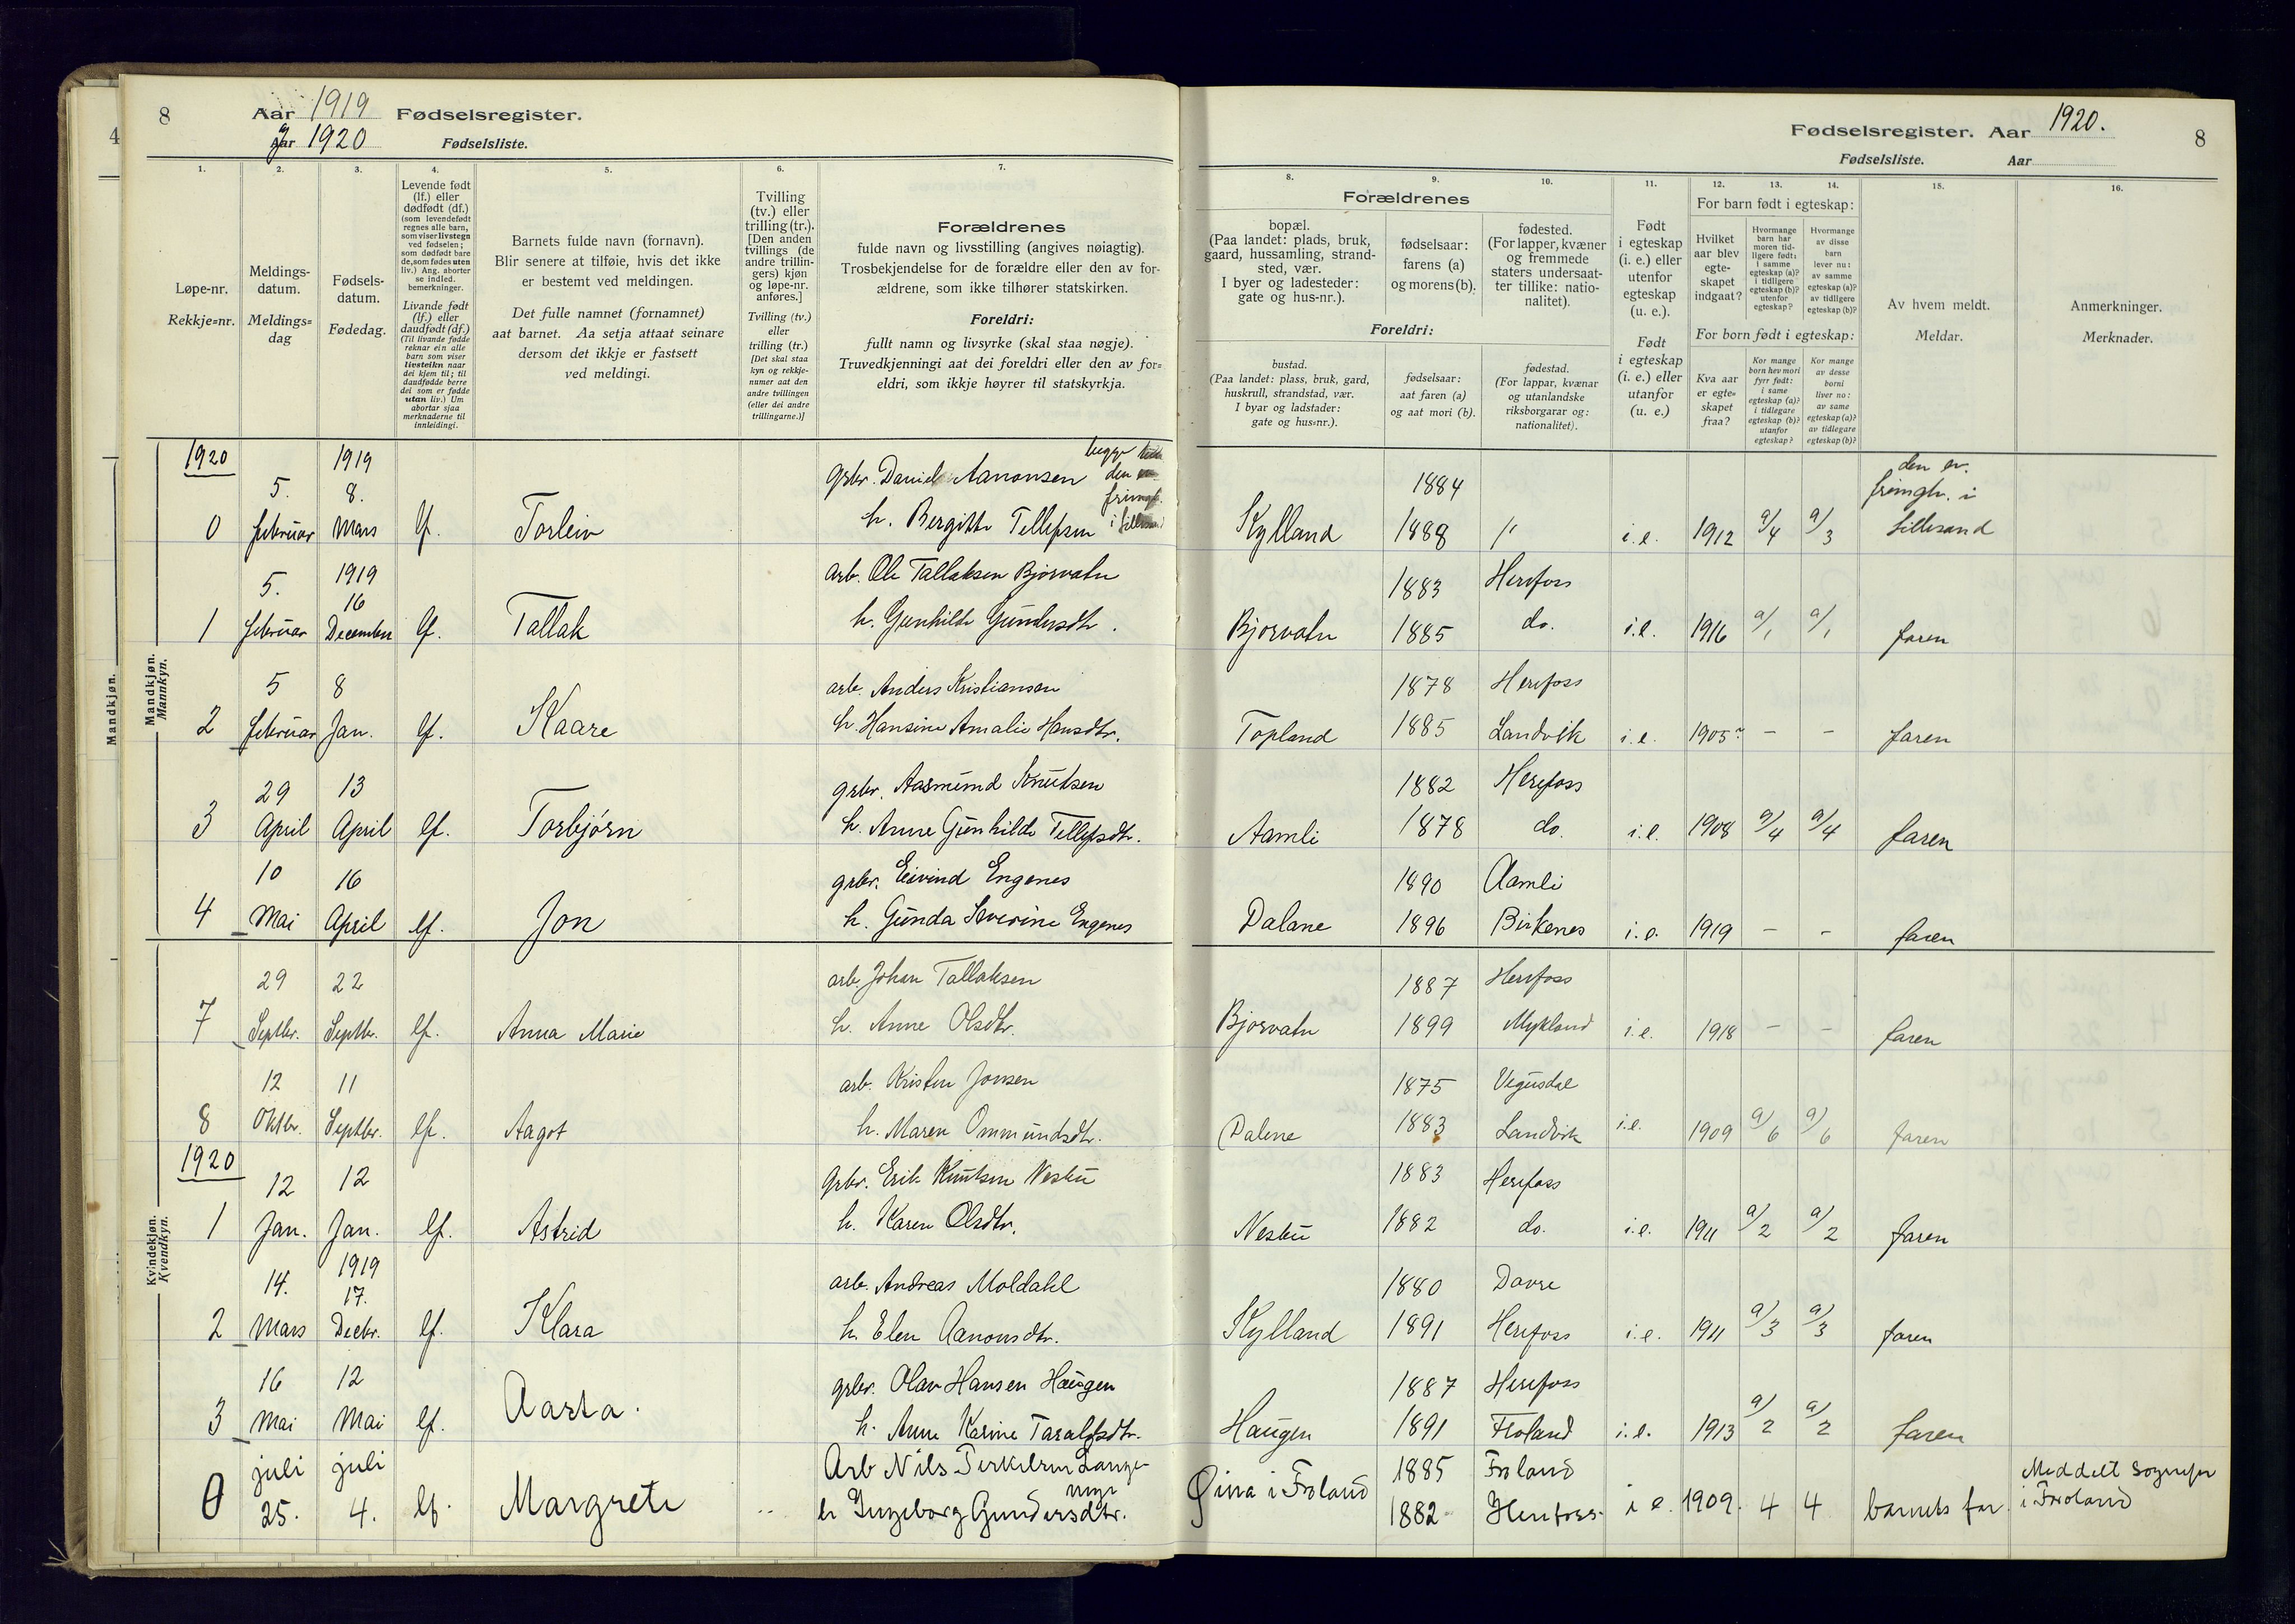 8 Aar 1919 Fødselsregister.
Aar 1920 Fødselsliste.
Fødselsregister. Aar 1920. 8
Fødselsliste. Aar
1. 2. 3. 4. 5. 6. 7.
8. 9. 10. 11. 12. 13. 14. 15. 16.
Løpe-nr.
Rekkje=nr.
Meldings-
datum.
Meldings=
dag
Fødsels-
datum.
Fødedag.
Levende født
(lf.) eller
dødfødt (df.)
(som levendefødt
regnes alle barn,
som viser livstegn
ved fødselen;
som dødfødt bare
de, som fødes uten
liv.) Ang. aborter
se indled.
bemerkninger.
Livande født
(lf.) eller
daudfødt (df.)
(Til livande fødde
reknar ein alle
barn som viser
livsteikn naar
dei kjem til; til
daudfødde berre
dei som er fødde
utan liv.) Um
abortar sjaa
merknaderne til
innleidingi.
Barnets fulde navn (fornavn).
Blir senere at tilføie, hvis det ikke
er bestemt ved meldingen.
Det fulle namnet (fornamnet)
aat barnet. Aa setja attaat seinare
dersom det ikkje er fastsett
ved meldingi.
Tvilling
(tv.) eller
trilling (tr.).
[Den anden
tvillings (de
andre trillin-
gers) kjøn
og løpe-nr.
anføres.]
Tvilling (tv.)
eller
trilling (tr.)
[Det skal staa
kyn og rekkje-
numer aat den
andre tvillingen
(eller dei andre
trillingarne.)]
Forældrenes
fulde navn og livsstilling (angives nøiagtig).
Trosbekjendelse for de forældre eller den av for-
ældrene, som ikke tilhører statskirken.
Foreldri:
fullt namn og livsyrke (skal staa nøgje).
Truvedkjenningi aat dei foreldri eller den av for=
eldri, som ikkje høyrer til statskyrkja.
Forældrenes
bopæl.
(Paa landet: plads, bruk,
gaard, hussamling, strand-
sted, vær.
I byer og ladesteder:
gate og hus-nr.).
fødselsaar:
farens (a)
og morens (b).
fødested.
(For lapper, kvæner
og fremmede
staters undersaat-
ter tillike: natio-
nalitet).
Foreldri:
bustad.
(Paa landet: plass, bruk, gard,
huskrull, strandstad, vær.
I byar og ladstader:
gate og hus=nr.).
fødselsaar:
aat faren (a)
og aat mori (b).
fødestad.
(For lappar, kvænar
og utanlandske
riksborgarar og:
nationalitet).
Født
i egteskap
(i. e.) eller
utenfor
egteskap
(u. e.).
Født
i egteskap
(i. e.) eller
utanfor
(u. e.)
For barn født i egteskap:
Hvilket
aar blev
egte-
skapet
indgaat?
Hvormange
barn har
moren tid-
ligere født:
i samme
egteskap (a)?
i tidligere
egteskap (b)?
utenfor
egteskap?
Hvormange
av disse
barn
lever nu:
av samme
egteskap (a)?
av tidligere
egteskap (b)?
For born født i egteskap:
Kva aar
er egte=
skapet
fraa?
Kor mange
born hev mori
fyrr født:
i same
egteskap (a)?
i tidlegare
egteskap (b)?
utanfor
egteskap?
Kor mange
av desse
borni
liver no:
av same
egteskap (a)?
av tidlegare
egteskap (b)?
Av hvem meldt.
Meldar.
Anmerkninger.
Merknader.
Mandkjøn.
Mandkjøn.
Mannkyn.
1920 1919 begge
5. 8. grbr. Daniel Aanonsen den 1884 den ev.
frimgh. frimgh. i
0 februar Mars lf. Torleiv h. Bergitte Tellefsen Kylland 1888 " i.e. 1912 a/4 a/3 Lillesand
5. 1919 16 arb. Ole Tallaksen Bjorvatn 1883 Herefoss
1 februar December lf. Tallak h. Gunhilde Gundersdtr. Bjorvatn 1885 do. i.e. 1916 a/1 a/1 faren
5 8 arb. Anders Kristiansen 1878 Herefoss
2 februar Jan. lf. Kaare h. Hansine Amalie Hansdtr. Topland 1885 Landvik i.e. 1905? - - faren
29 13 grbr. Aasmund Knutsen 1882 Herefoss
3 April April lf. Torbjörn h. Anne Gunhilde Tellefsdtr. Aamli 1878 do. i.e. 1908 a/4 a/4 faren
10 16 grbr. Eivind Engenes 1890 Aamli
4 Mai April lf. Jon h. Gunda Severine Engenes Dalane 1896 Birkenes i.e. 1919 - - faren
Kvindekjøn.
Kvendkyn.
29 22 arb. Johan Tallaksen 1887 Herefoss
7 Septbr. Septbr. lf. Anna Marie h. Anne Olsdtr. Bjorvatn 1899 Mykland i.e. 1918 - - faren
12 11 arb. Kristen Jonsen 1875 Vegusdal
8 Oktbr. Septbr. lf. Aagot h. Maren Ommundsdtr. Dalene 1883 Landvik i.e. 1909 a/6 a/6 faren
1920
12 12 Grbr. Erik Knutsen Nestu 1883 Herefoss
1 Jan. Jan. lf. Astrid h. Karen Olsdtr. Nestu 1882 do. i.e. 1911 a/2 a/2 faren
14. 1919 17. arb. Andreas Moldahl 1880 Dovre
2 Mars Decbr. lf. Klara h. Elen Aanonsdtr. Kylland 1891 Herefoss i.e. 1911 a/3 a/3 faren
16 12 grbr. Olav Hansen Haugen 1887 Herefoss
3 Mai Mai lf. Aasta. h. Anne Karine Taralfsdtr. Haugen 1891 Froland i.e. 1913 a/2 a/2 faren
juli juli Arb Nils Terkelsen 1885 Froland Meddelt sognepr
0 25. 4. lf. Margrete h Ingeborg Gundersdtr. i Froland 1882 Herefoss. i e. 1909. 4 4 barnets far. i Froland